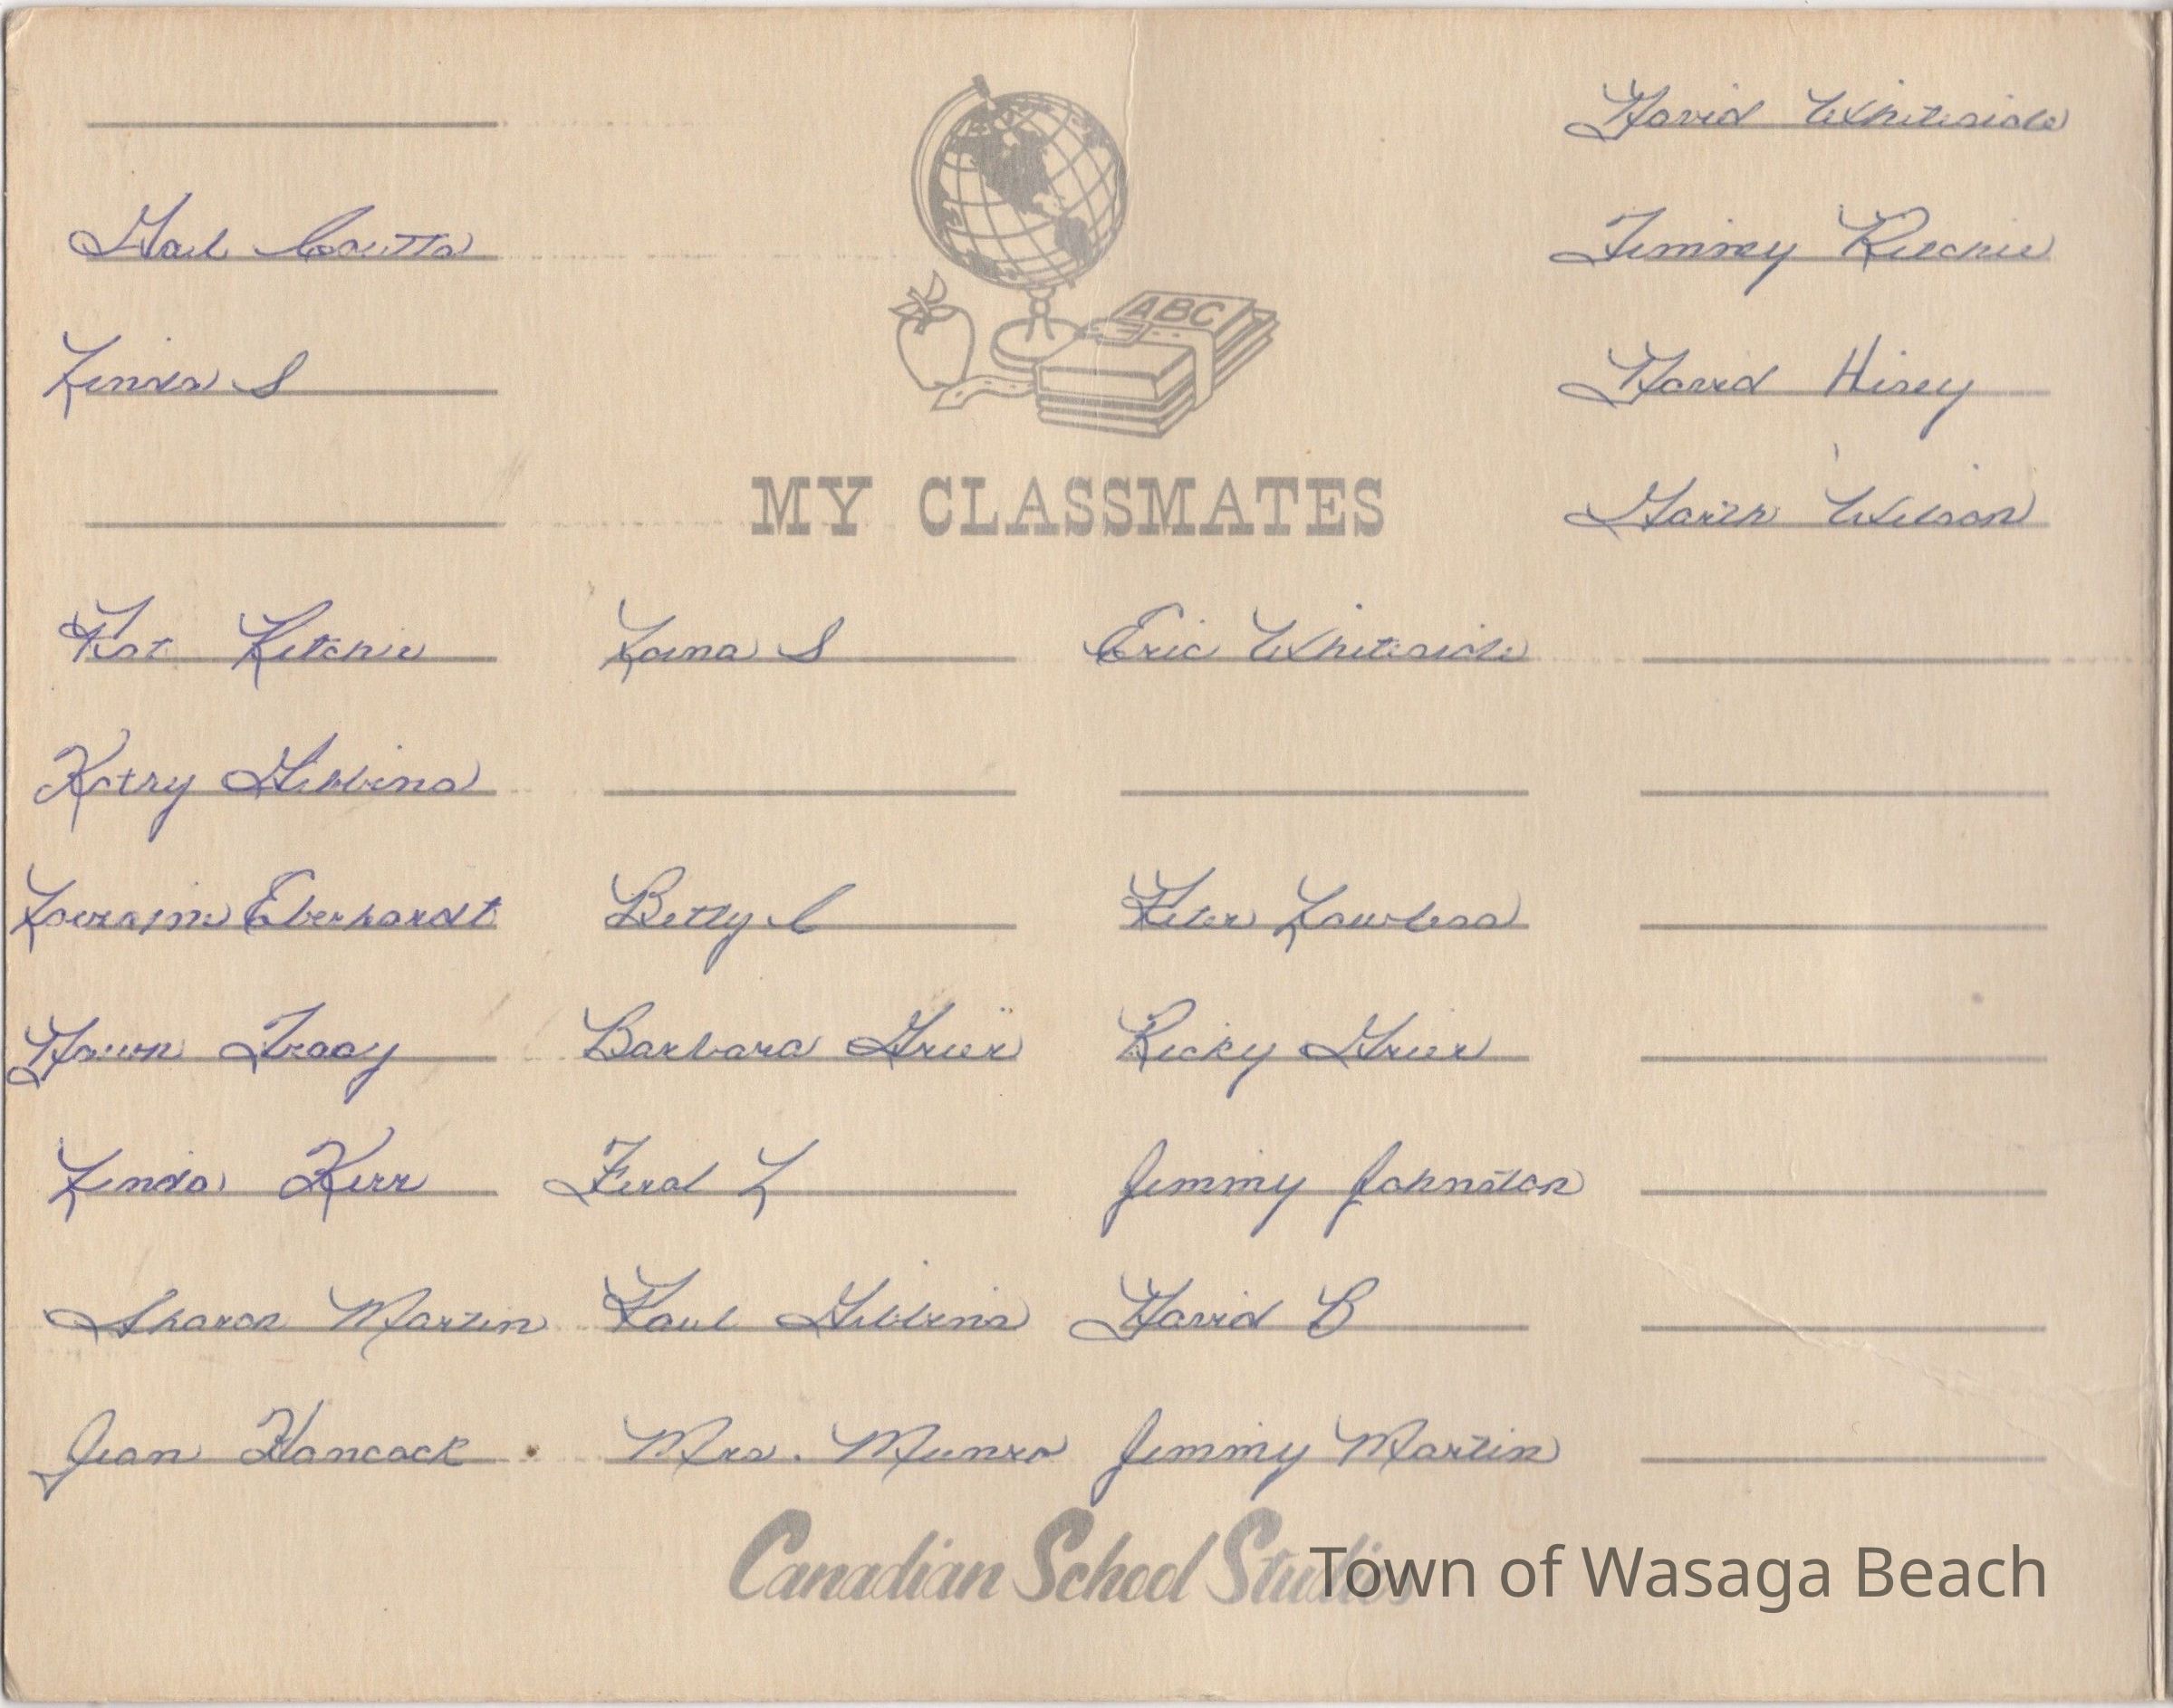 David Whiteside
Gail Coutts
Jimmy Ritchie
Linda S
David Hisey
ABC
MY CLASSMATES
Garth Wilson
Pat Ritchie
Lorna S
Eric Whiteside
Kathy Gibbins
Lorraine Eberhardt
Betty C
Peter Lawless
Dawn Tracy
Barbara Grier
Ricky Grier
Linda Kerr
Fred L
Jimmy Johnston
Sharon Martin
Paul Gibbins
David B
Jean Hancock
Mrs. Munro
Jimmy Martin
Canadian School Studios
Town of Wasaga Beach